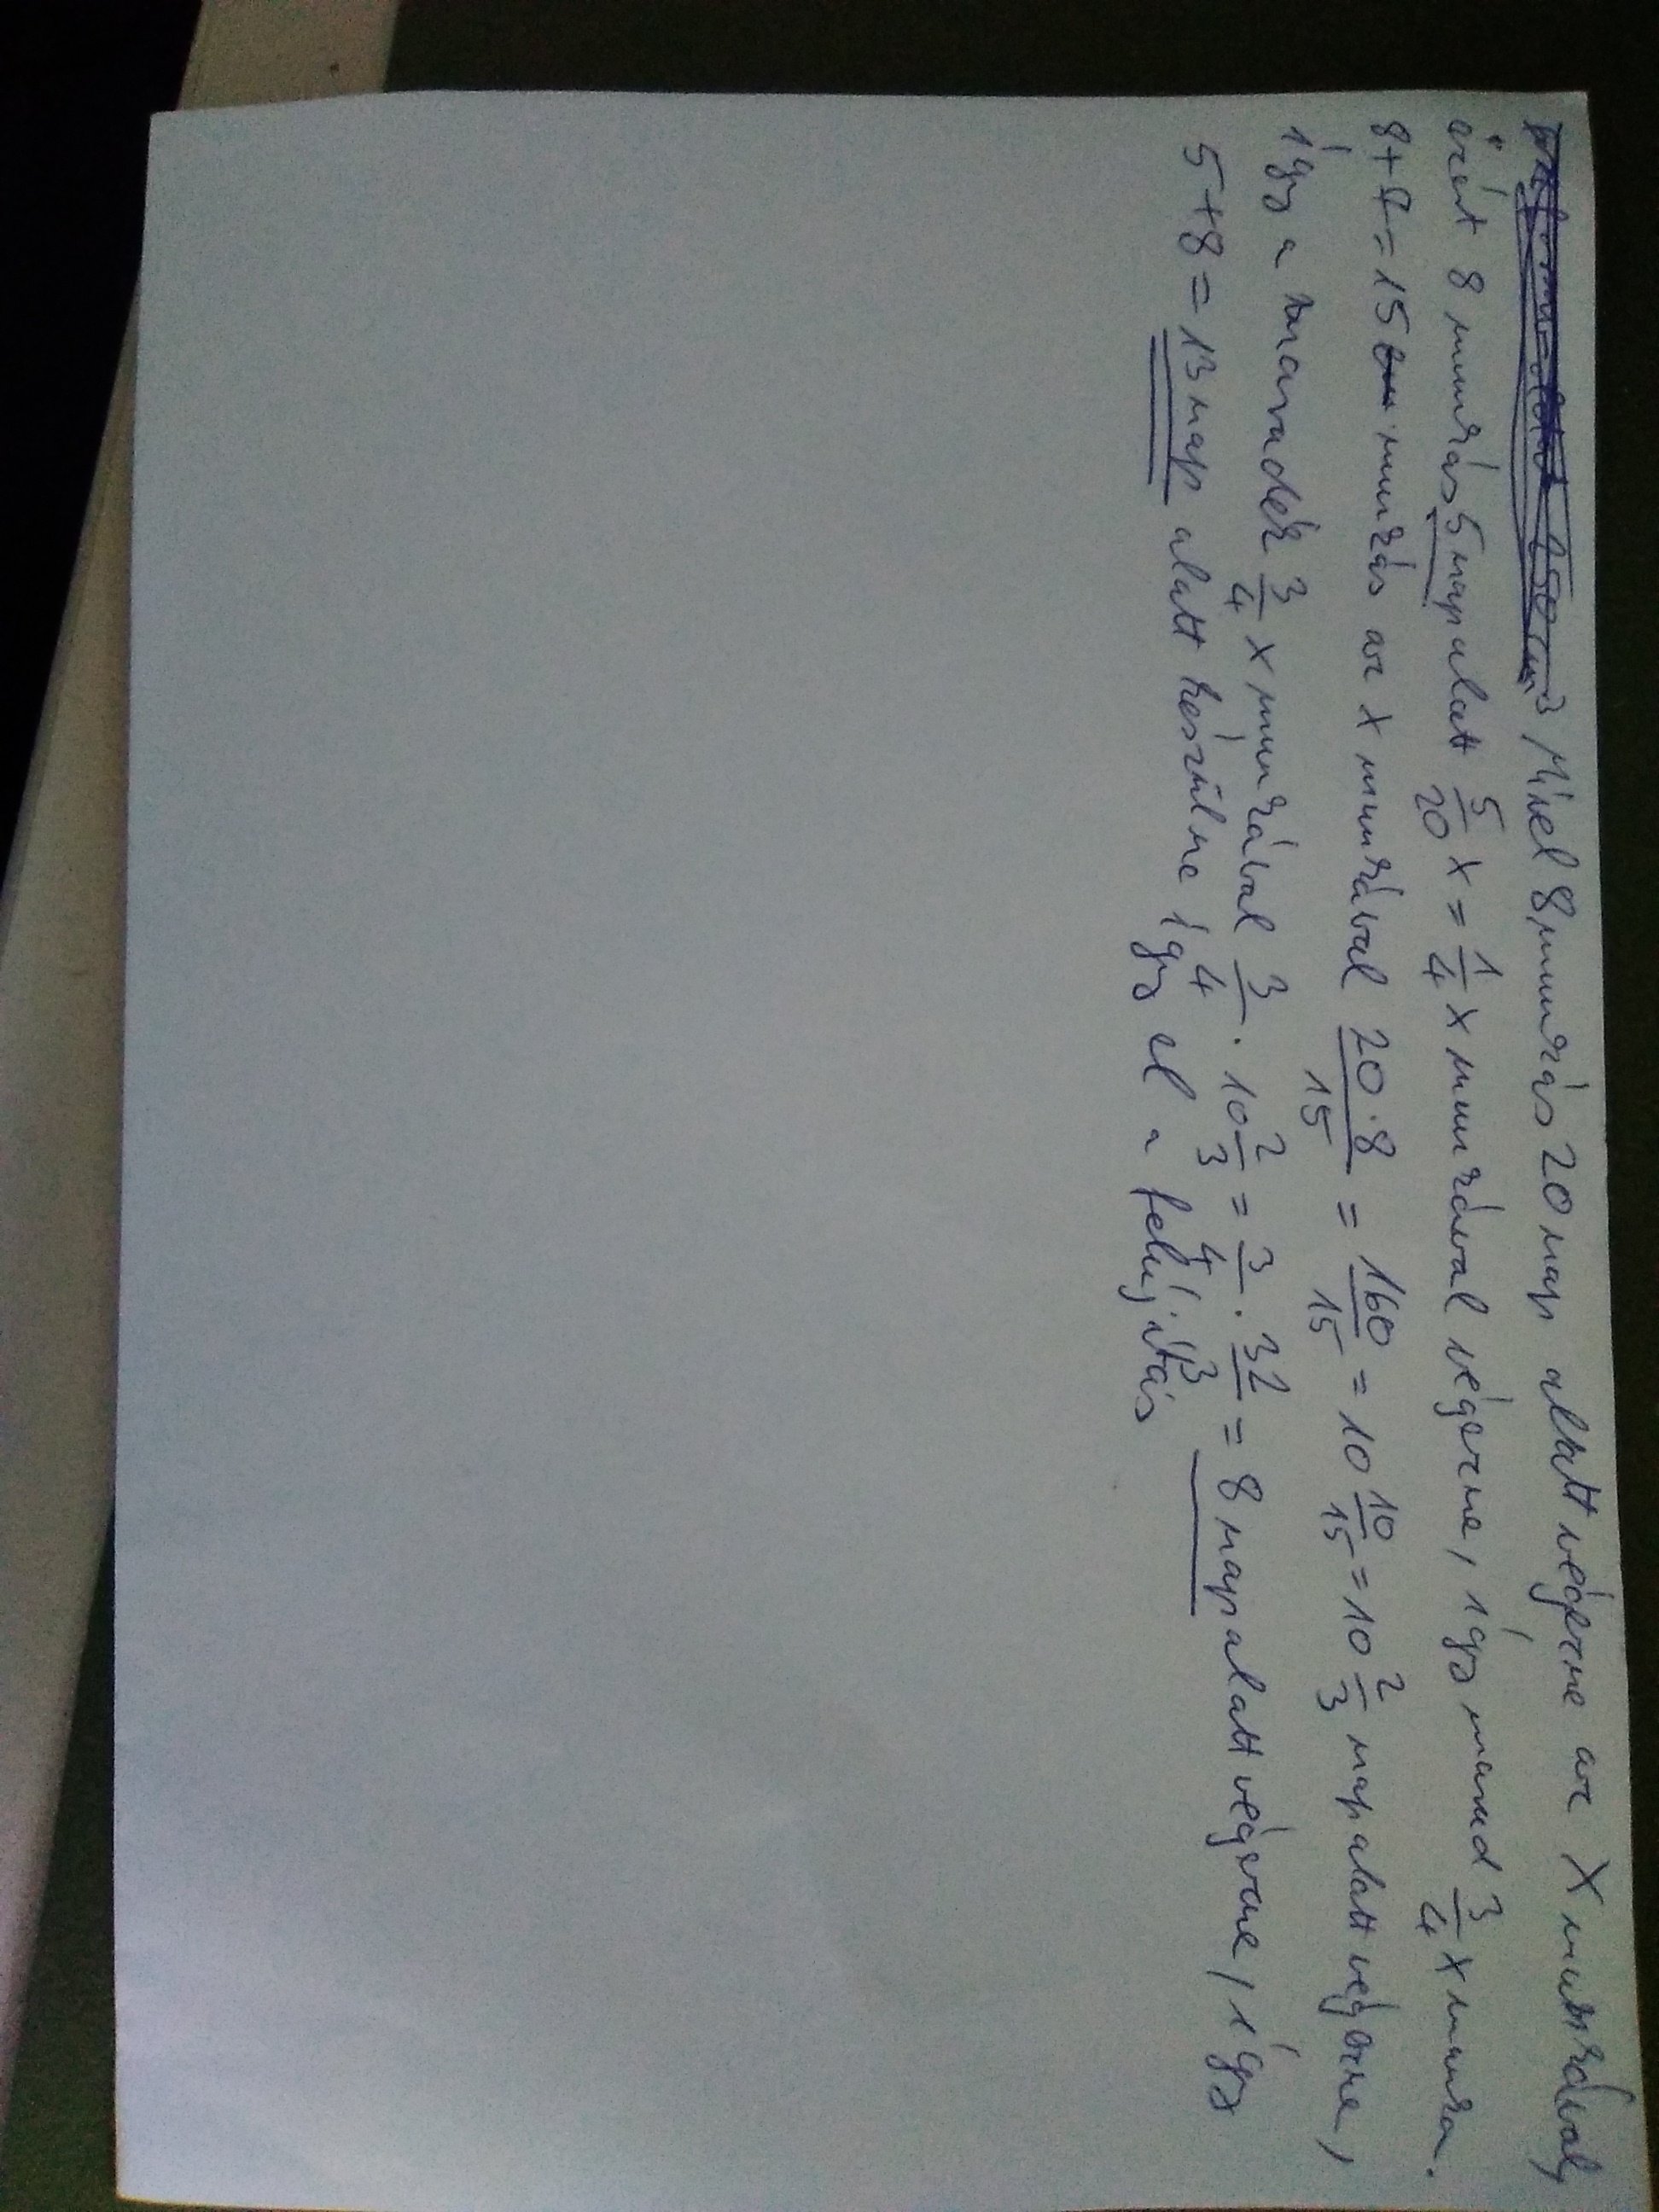 Mivel 8 munkás 20 nap alatt végezne az X munkával,
ezért 8 munkás 5 nap alatt 5/20 x = 1/4 x munkával végezne, így marad 3/4 x munka.
8+7=15 munkás az x munkával 20·8/15 = 160/15 = 10 10/15 = 10 2/3 nap alatt végezne,
így a maradék 3/4 x munkával 3/4 · 10 2/3 = 3/4 · 32/3 = 8 nap alatt végezne, így
5+8=13 nap alatt készülne így el a felújítás